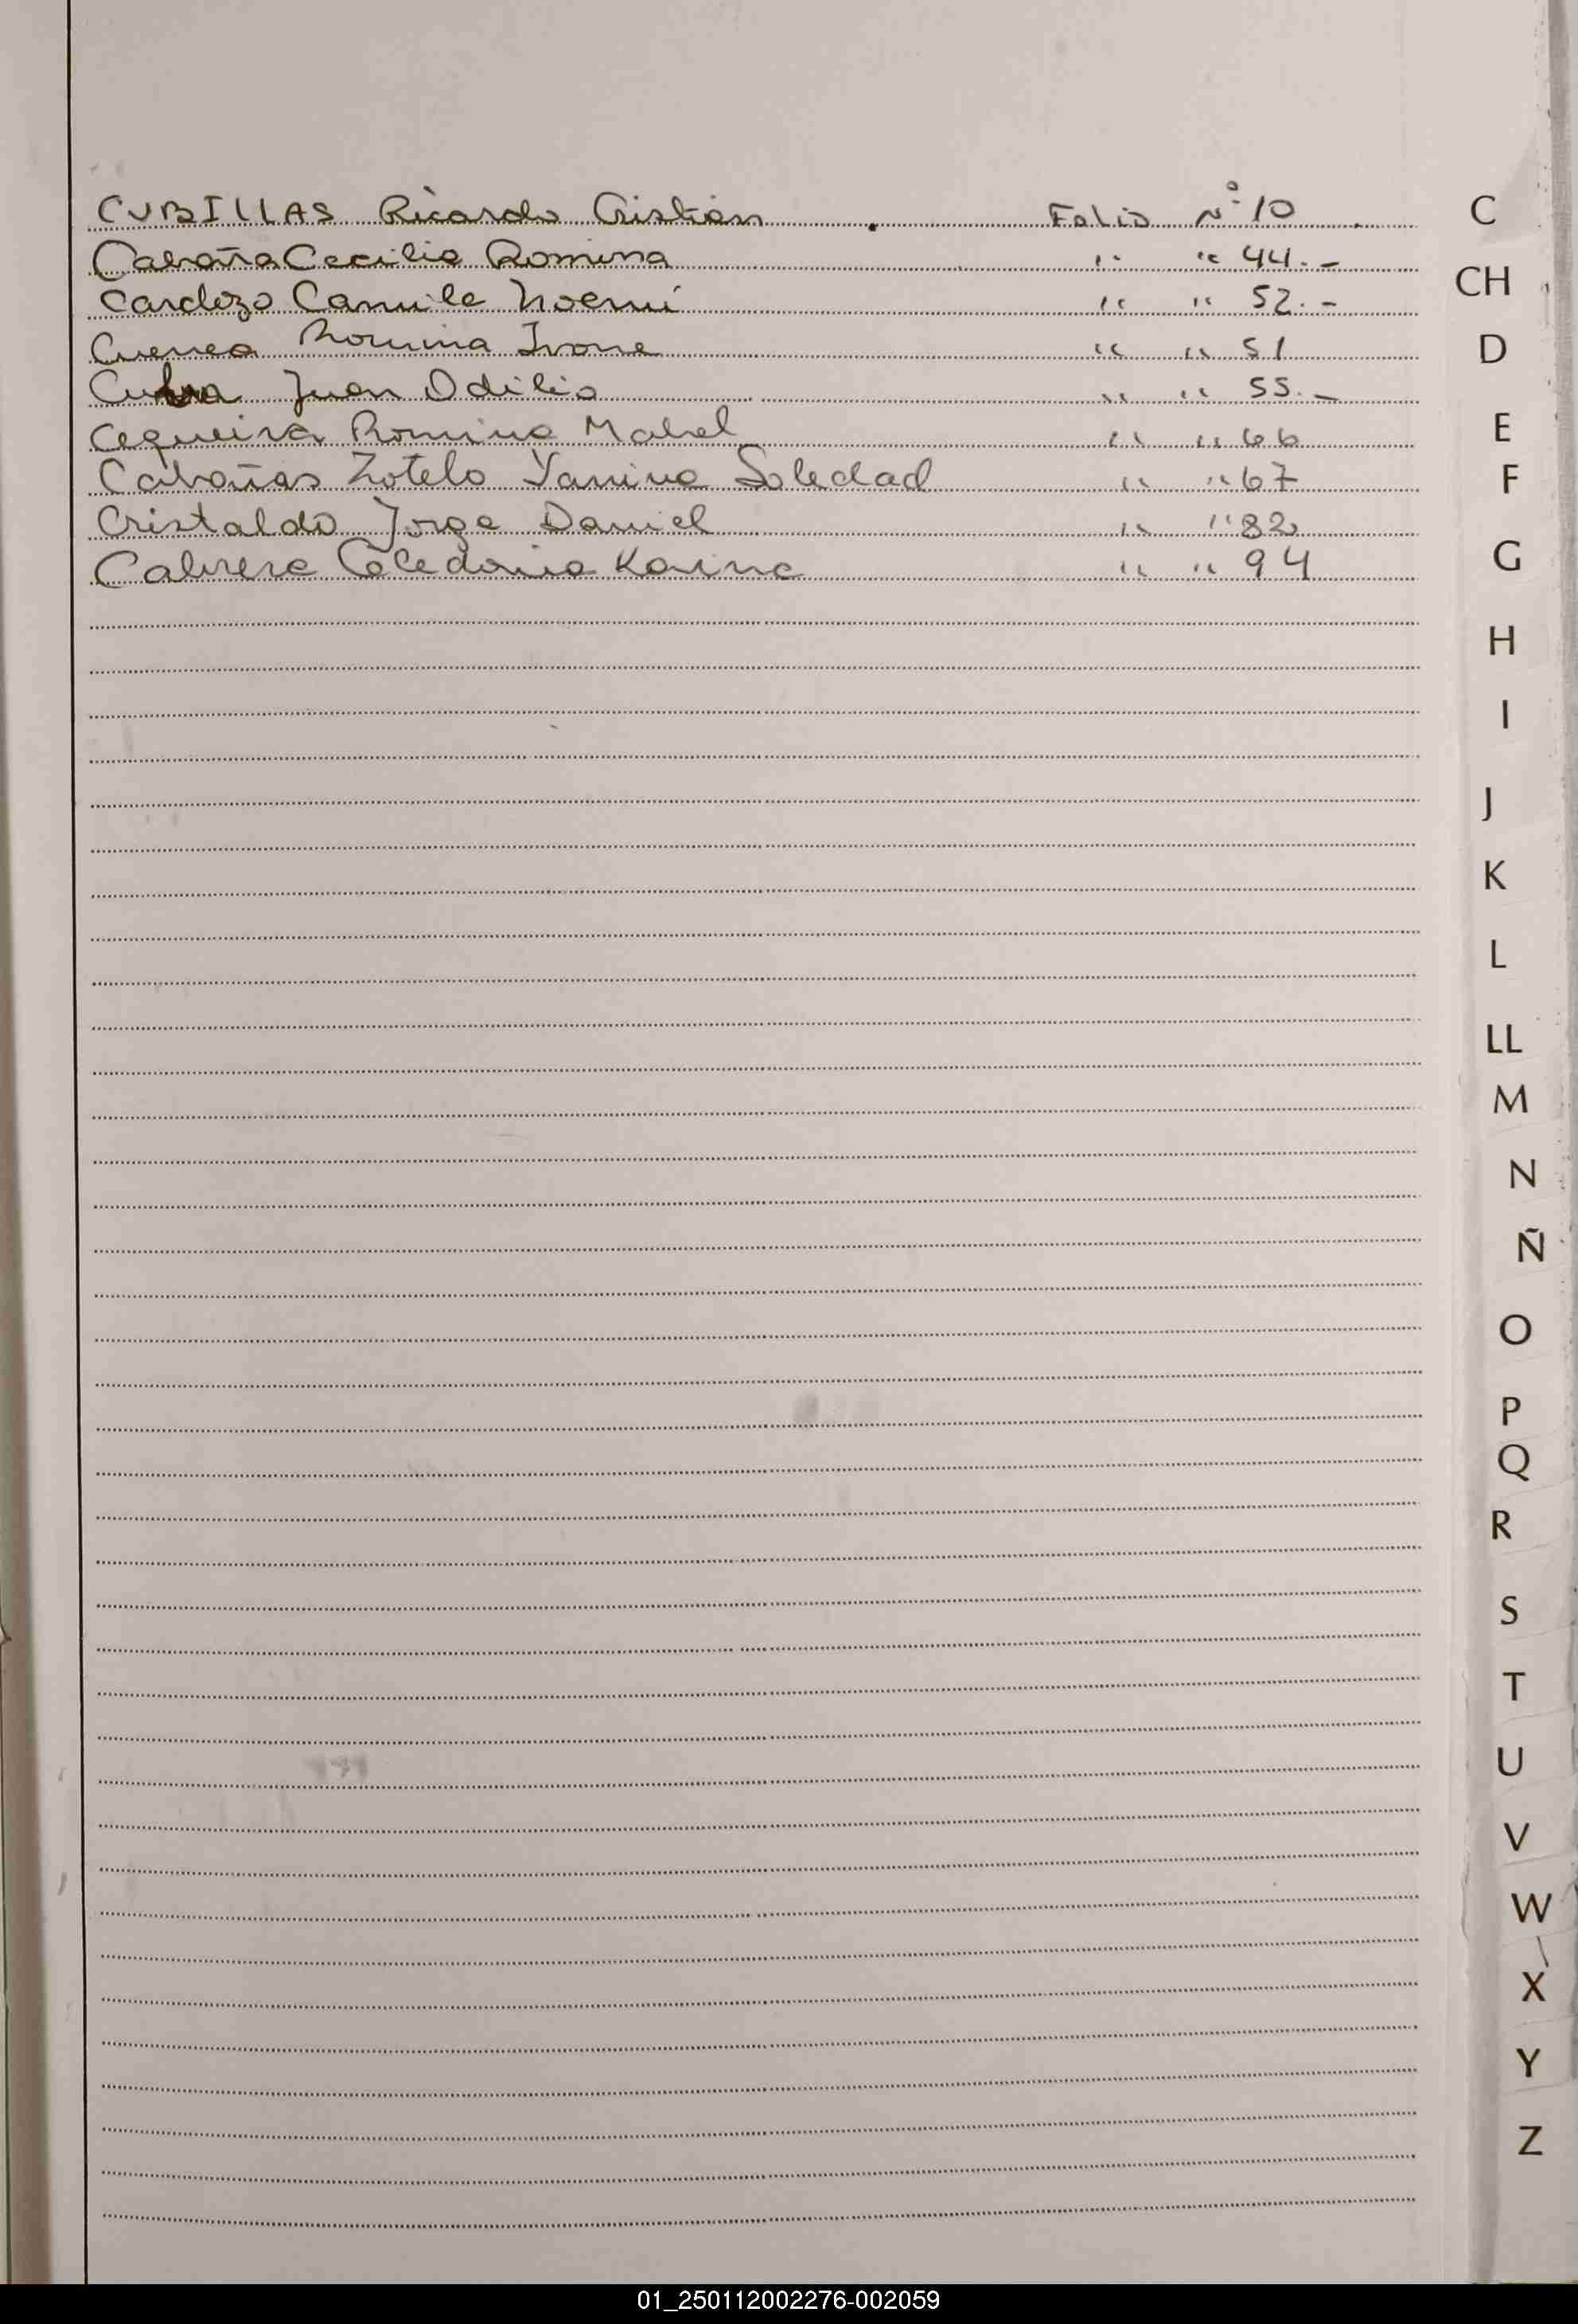 CUBILLAS Ricardo Cristian . Folio Nº 10 .
Cabaña Cecilia Romina " " 44.-
Cardozo Camila Noemí " " 52.-
Cuenca Romina Ivone " " 51
Juan Odilio " " 55.-
Cequeira Romina Mabel " " 66
Cabañas Zotelo Yanina Soledad " " 67
Cristaldo Jorge Daniel " " 82
Cabrera Celedonia Karina " " 94
C
CH
D
E
F
G
H
I
J
K
L
LL
M
N
Ñ
O
P
Q
R
S
T
U
V
W
X
Y
Z
01_250112002276-002059